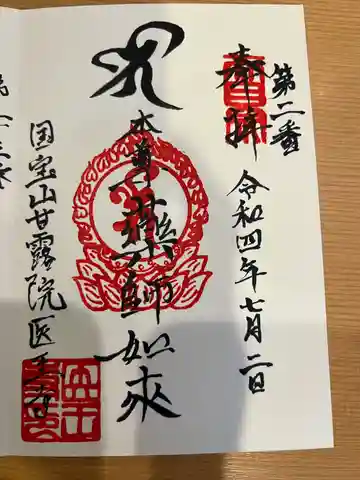 第二番
奉拝
令和四年七月二日
本尊薬師如来
国宝山甘露院医王寺